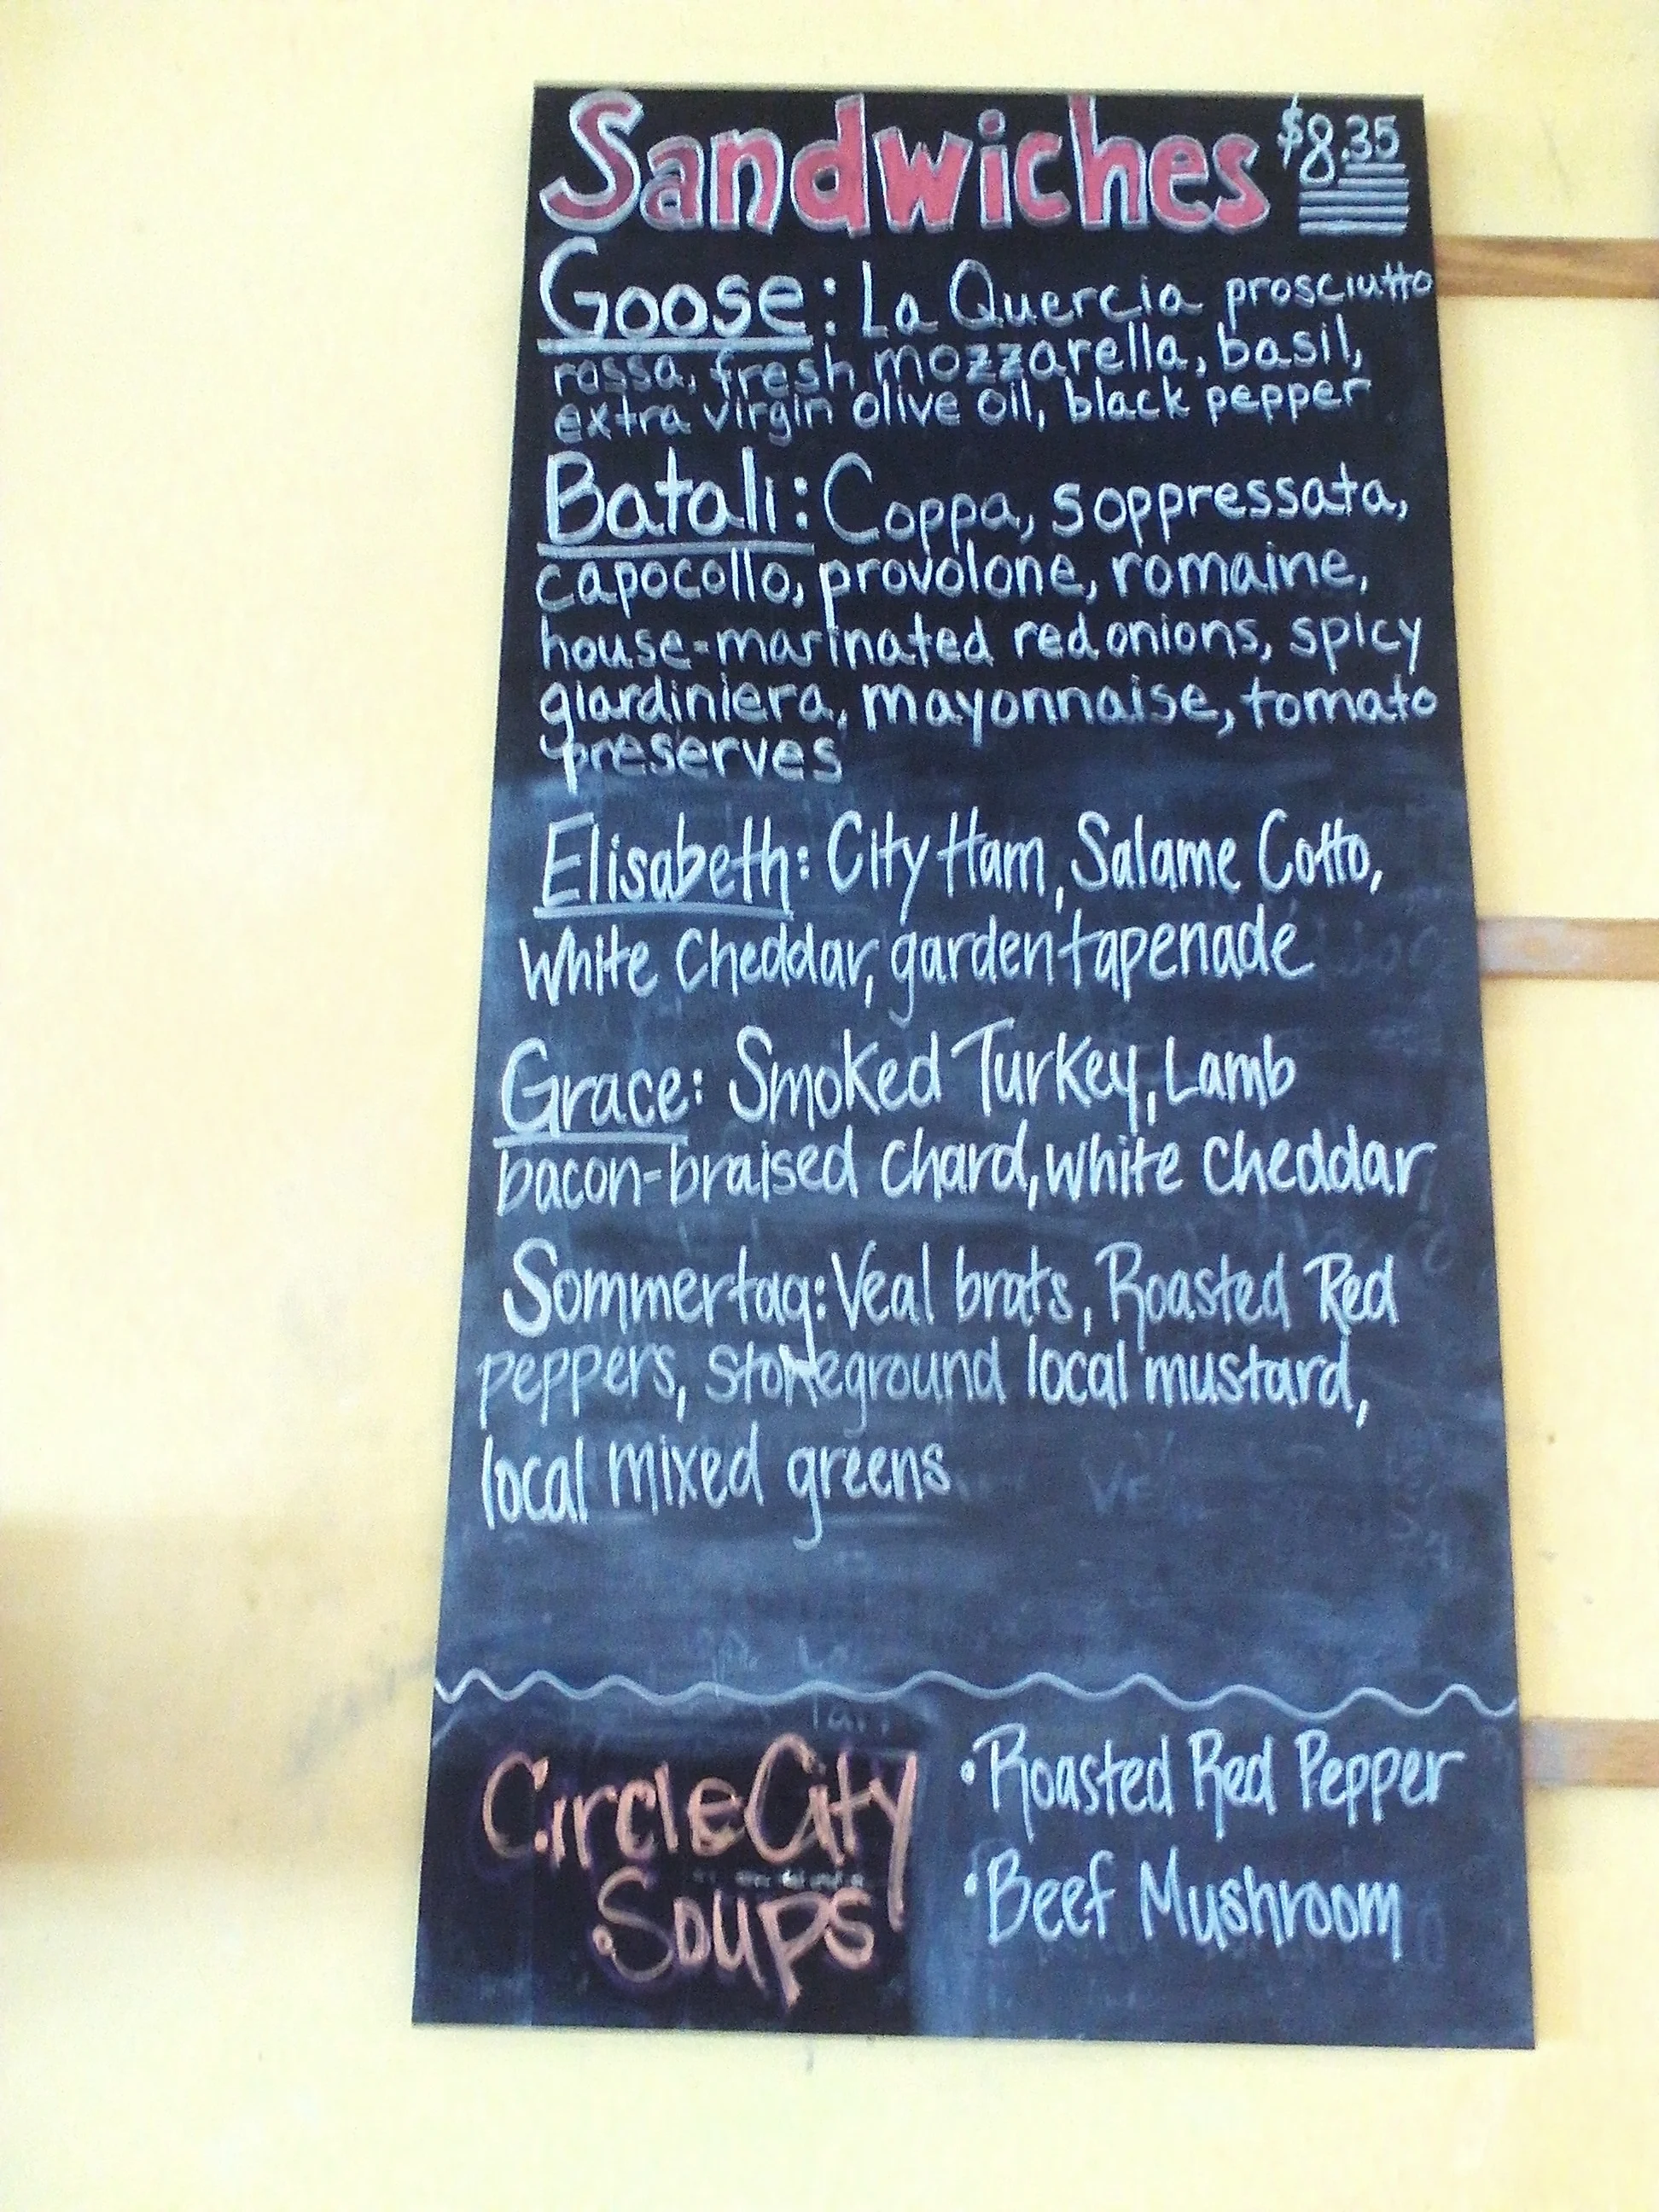 Sandwiches $8.35
Goose: La Quercia prosciutto
rossa, fresh mozzarella, basil,
extra virgin olive oil, black pepper
Batali: Coppa, soppressata,
capocollo, provolone, romaine,
house-marinated red onions, spicy
giardiniera, mayonnaise, tomato
preserves
Elisabeth: City Ham, Salame Cotto,
White Cheddar, garden tapenade
Grace: Smoked Turkey, Lamb
bacon-braised chard, white cheddar
Sommertag: Veal brats, Roasted Red
peppers, stoneground local mustard,
local mixed greens
Circle City
Soups
• Roasted Red Pepper
• Beef Mushroom